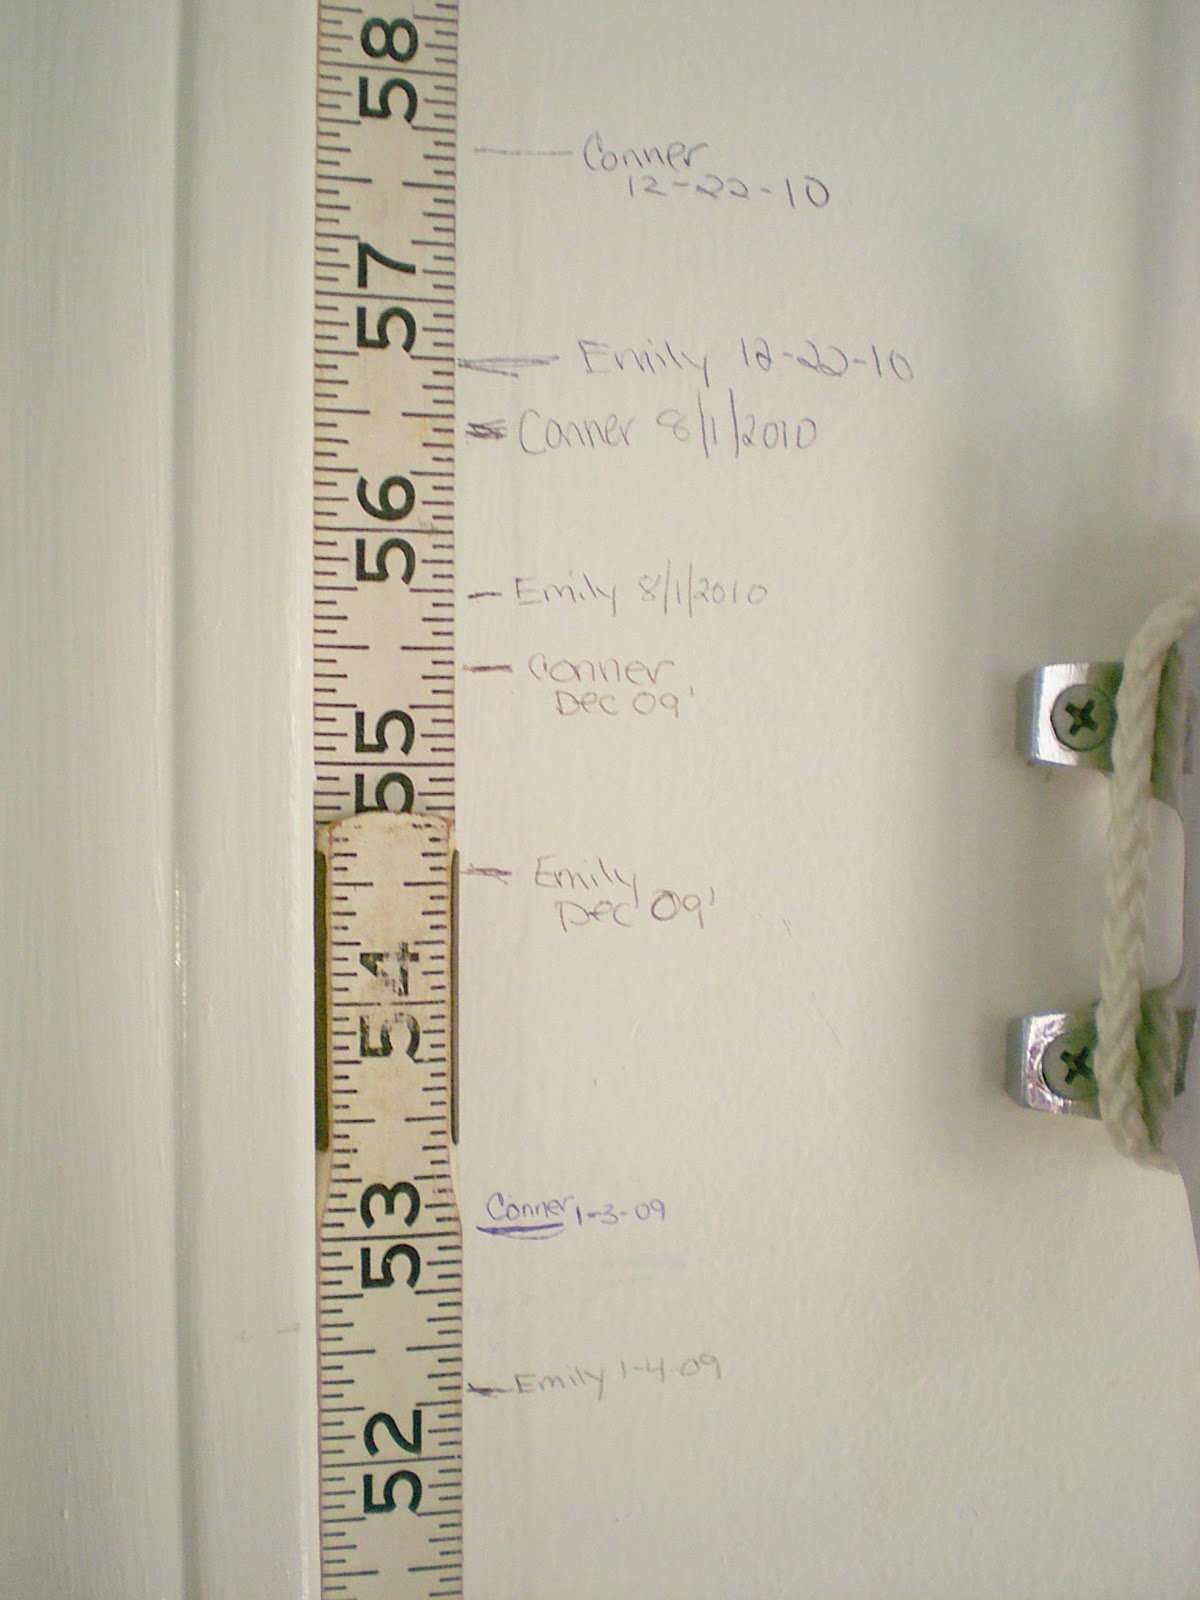 58
Conner
12-22-10
57
Emily 12-22-10
Conner 8/1/2010
56
Emily 8/1/2010
Conner
Dec 09'
55
Emily
Dec 09'
54
53
Conner 1-3-09
Emily 1-4-09
52